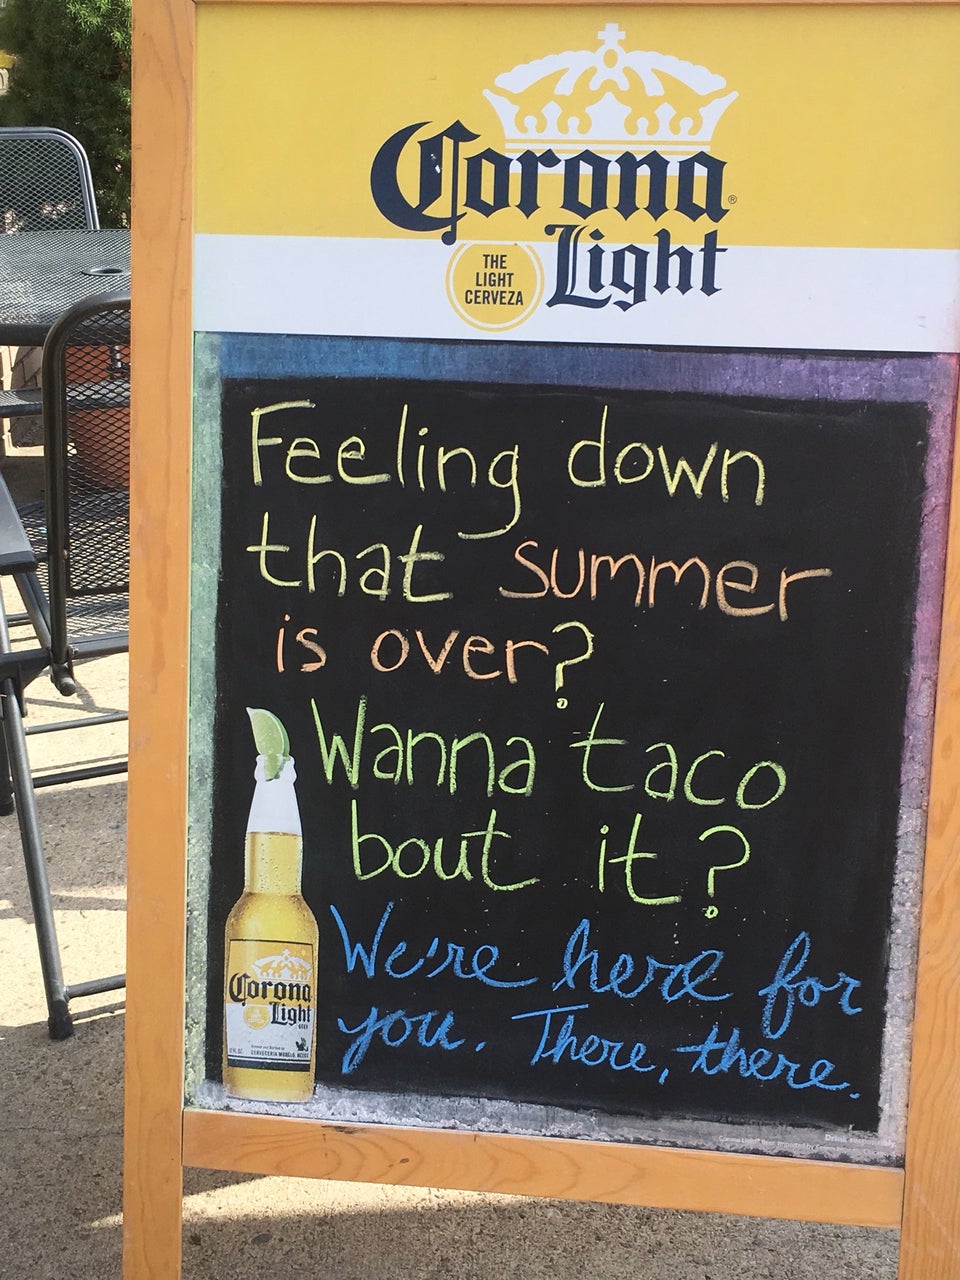 Corona
Light
THE
LIGHT
CERVEZA
Feeling down
that summer
is over?
Wanna taco
bout it?
We're here for
you. There, there.
Corona
Light
Drink responsibly.